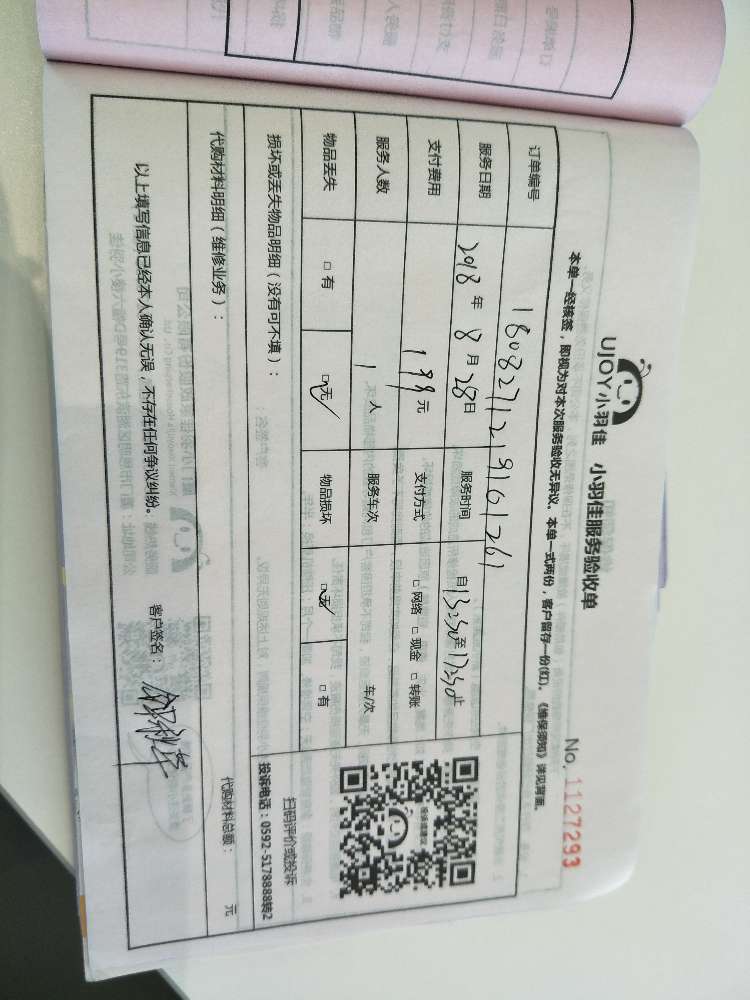 UJOY小羽佳 小羽佳服务验收单
No. 1127293
本单一经核签，即视为对本次服务验收无异议。本单一式两份，客户留存一份(红)。《维保须知》详见背面。
订单编号 1808271219161261
服务日期 2018 年 8 月 28 日 服务时间 自 13:30 至 17:30 止
支付费用 199 元 支付方式 □ 网络 □ 现金 □ 转账
服务人数 1 人 服务车次 车/次
物品丢失 □ 有 □ 无 物品损坏 □ 无 □ 有
投诉或建议
扫码评价或投诉
投诉电话：0592-5178888转2
损坏或丢失物品明细（没有可不填）：
代购材料明细（维修业务）：
代购材料总额： 元
以上填写信息已经本人确认无误，不存在任何争议纠纷。 客户签名：